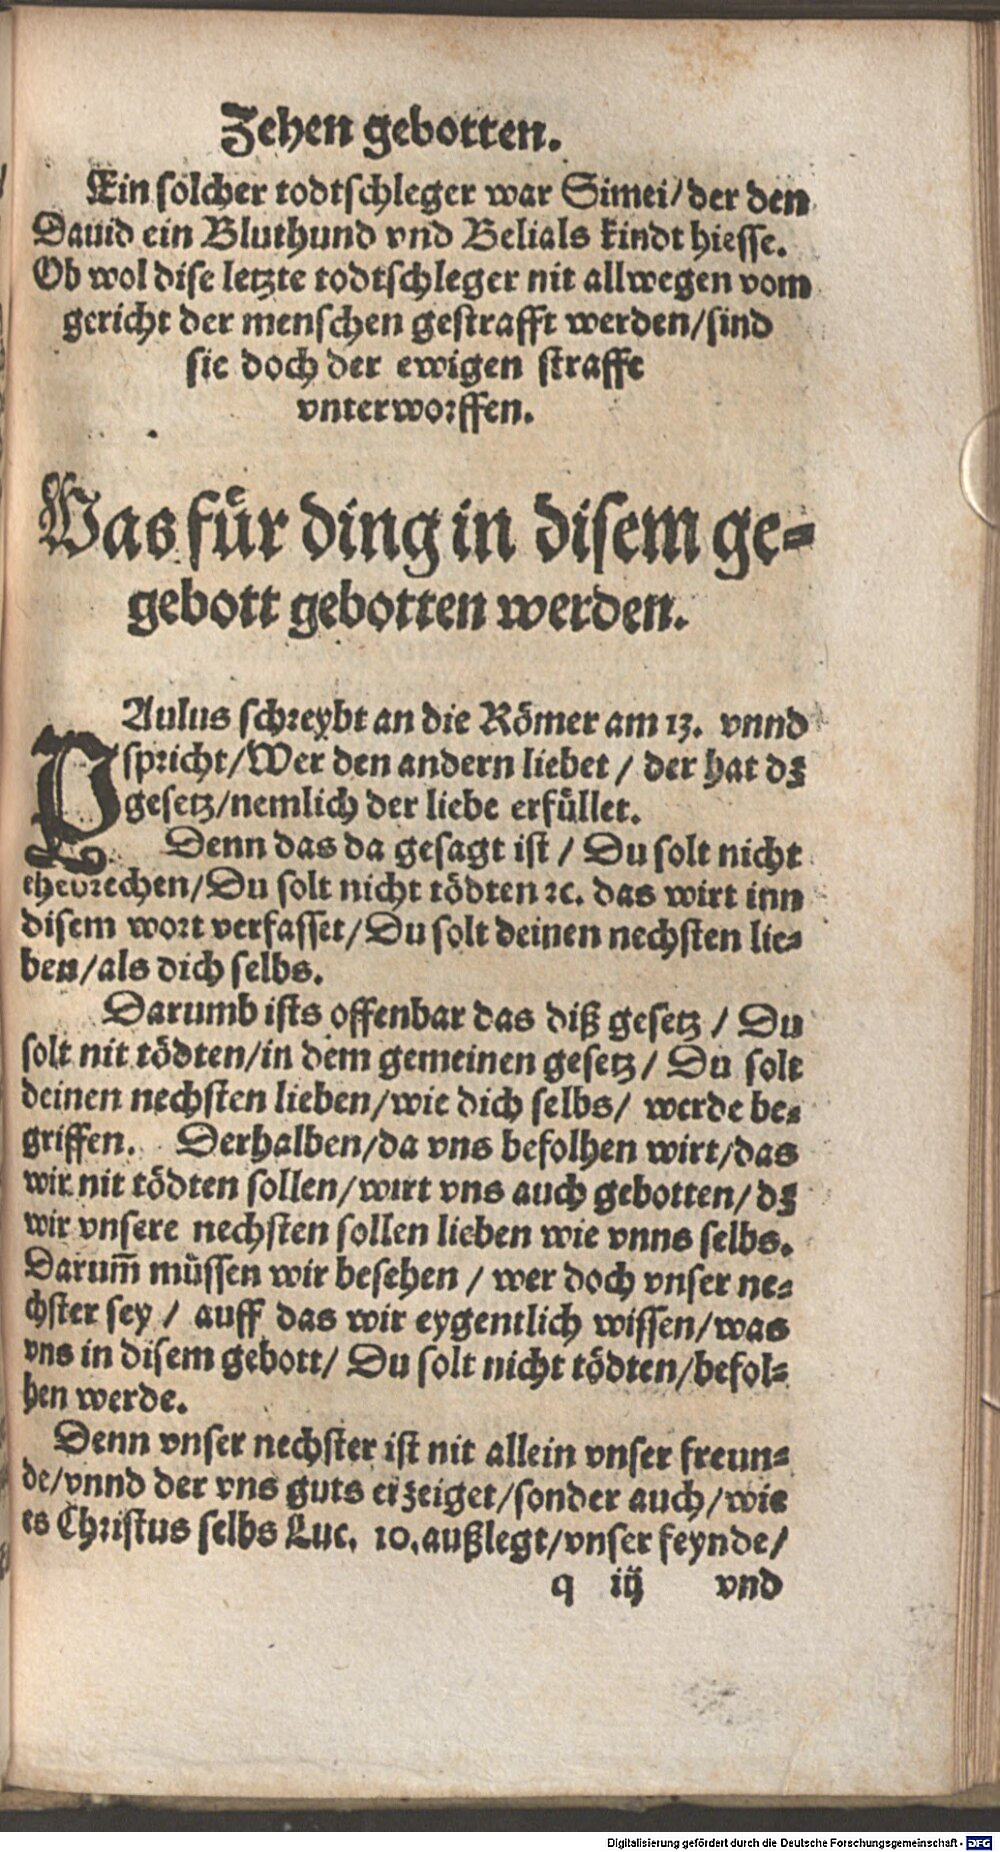 Zehen gebotten.
Ein solcher todtschleger war Simei/ der den
Dauid ein Bluthund vnd Belials kindt hiesse.
Ob wol dise letzte todtschleger nit allwegen vom
gericht der menschen gestrafft werden/sind
sie doch der ewigen straffe
vnterworffen.
Was für ding in disem ge-
gebott gebotten werden.
PAulus schreybt an die Römer am 13. vnnd
spricht/Wer den andern liebet / der hat dz
gesetz/nemlich der liebe erfüllet.
Denn das da gesagt ist / Du solt nicht
ehebrechen/Du solt nicht tödten ꝛc. das wirt inn
disem wort verfasset/Du solt deinen nechsten lie-
ben/als dich selbs.
Darumb ists offenbar das diß gesetz / Du
solt nit tödten/in dem gemeinen gesetz/ Du solt
deinen nechsten lieben/wie dich selbs/ werde be-
griffen. Derhalben/da vns befolhen wirt/das
wir nit tödten sollen/wirt vns auch gebotten/dz
wir vnsere nechsten sollen lieben wie vnns selbs.
Darum̅ müssen wir besehen / wer doch vnser ne-
chster sey / auff das wir eygentlich wissen/was
vns in disem gebott/ Du solt nicht tödten/befol-
hen werde.
Denn vnser nechster ist nit allein vnser freun-
de/vnnd der vns guts erzeiget/sonder auch/wie
es Christus selbs Luc. 10.außlegt/vnser feynde/
q iij vnd
Digitalisierung gefördert durch die Deutsche Forschungsgemeinschaft - DFG